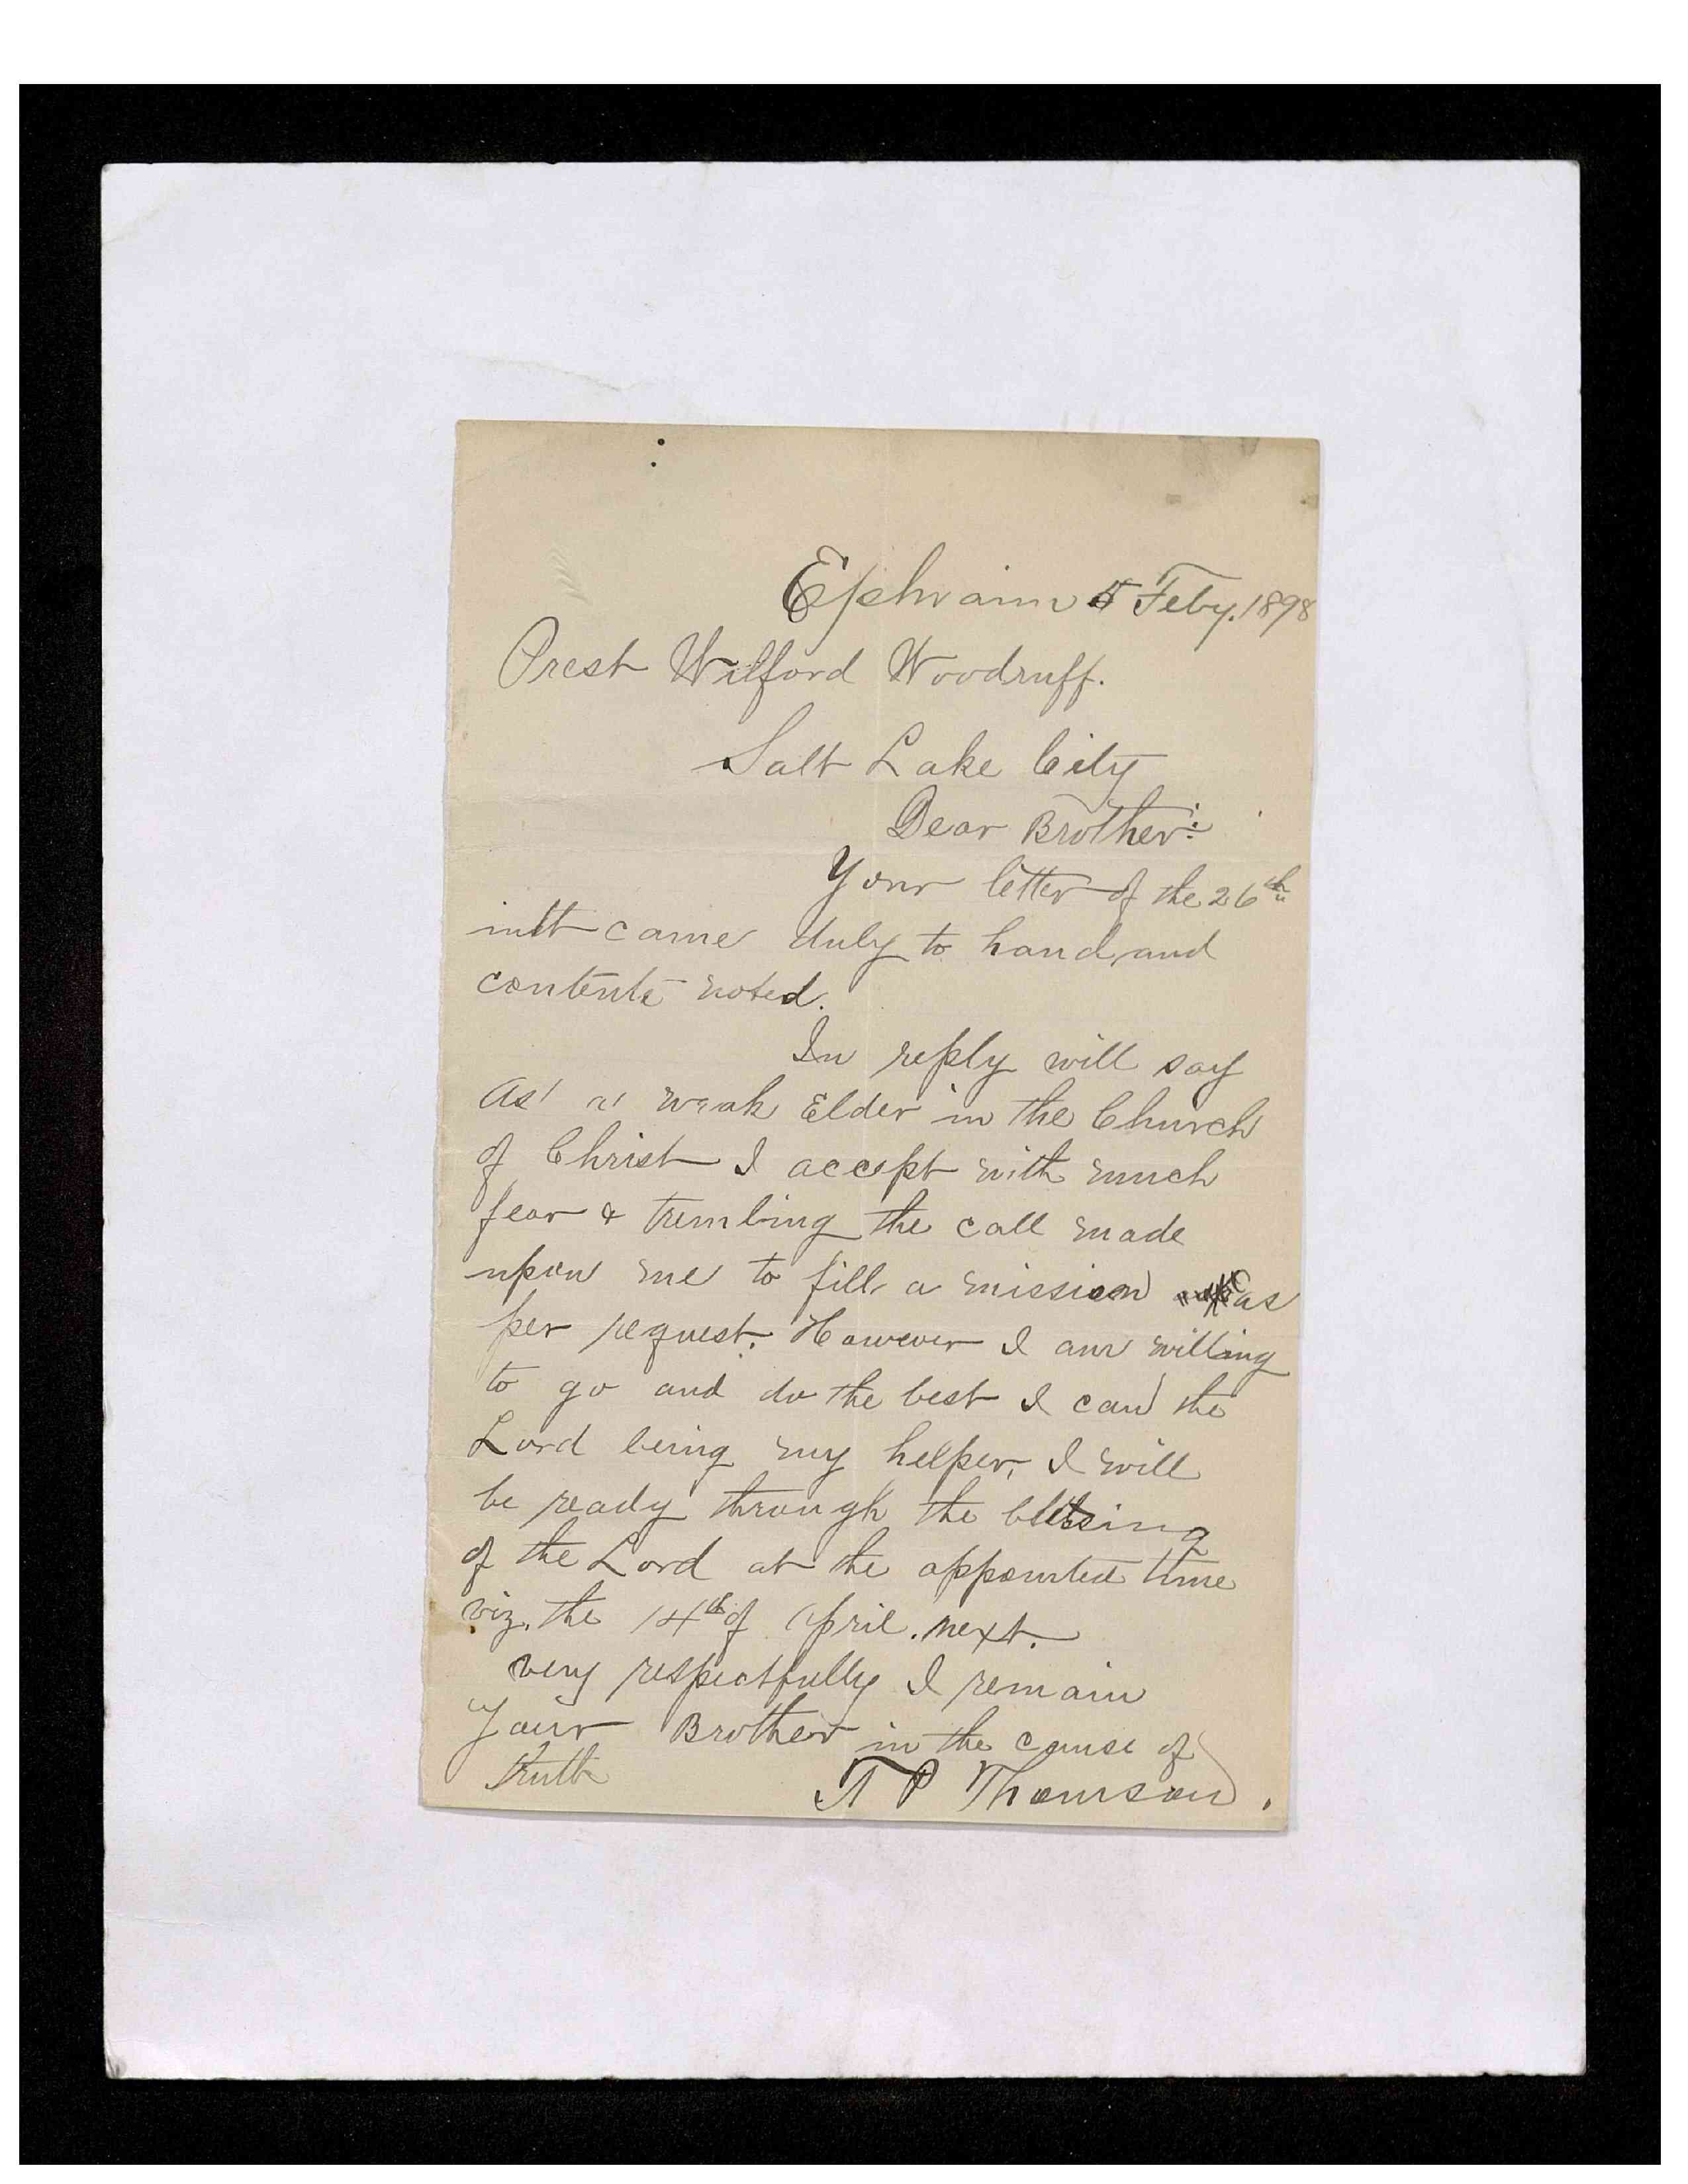 Ephraim 5 Feby. 1898
Prest Wilford Woodruff.
Salt Lake City
Dear Brother:
Your letter of the 26th
inst came duly to hand, and
contents noted.
In reply will say
As a weak Elder in the Church
of Christ I accept with much
fear & trembling the call made
upon me to fill a mission as
per request. However I am willing
to go and do the best I can the
Lord being my helper, I will
be ready through the blessing
of the Lord at the appointed time
viz. the 14th of April. next.
very respectfully I remain
Your Brother in the cause of
truth
P Thomson.